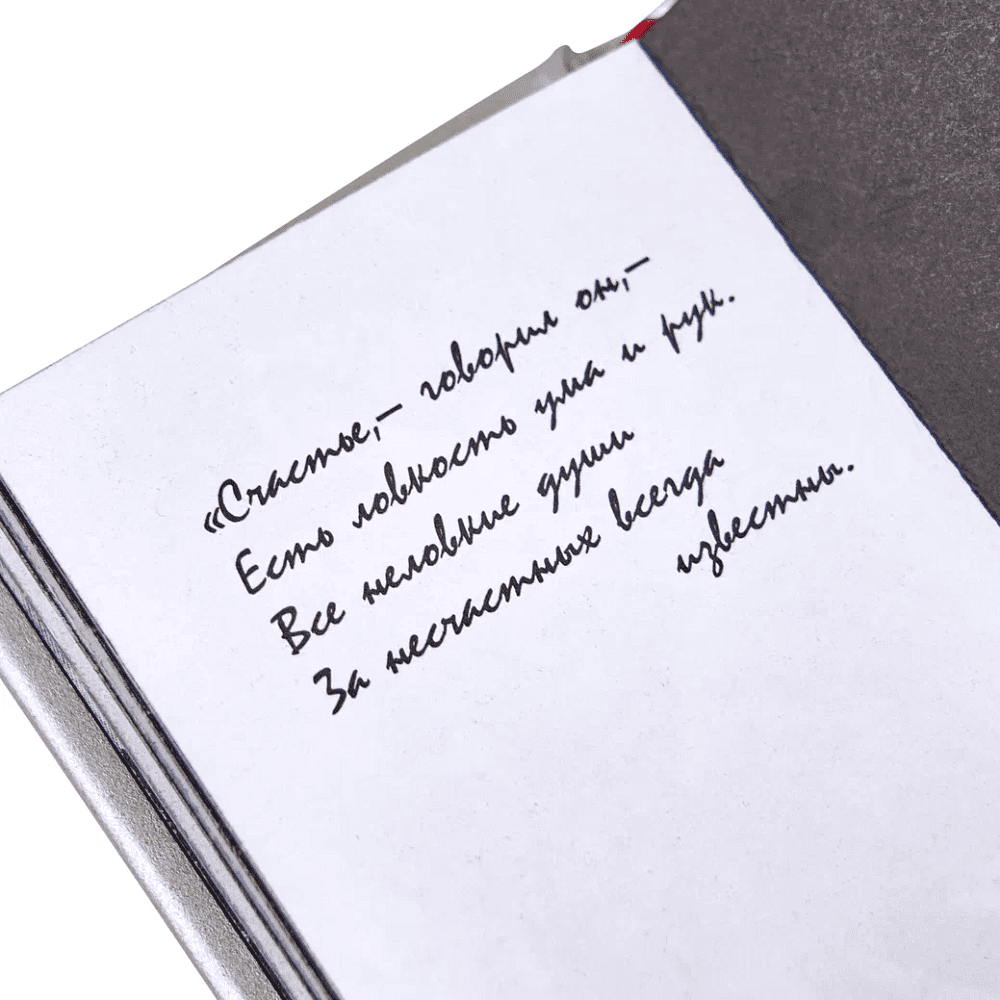 «Счастье,– говорил он,–
Есть ловкость ума и рук.
Все неловкие души
За несчастных всегда
известны.